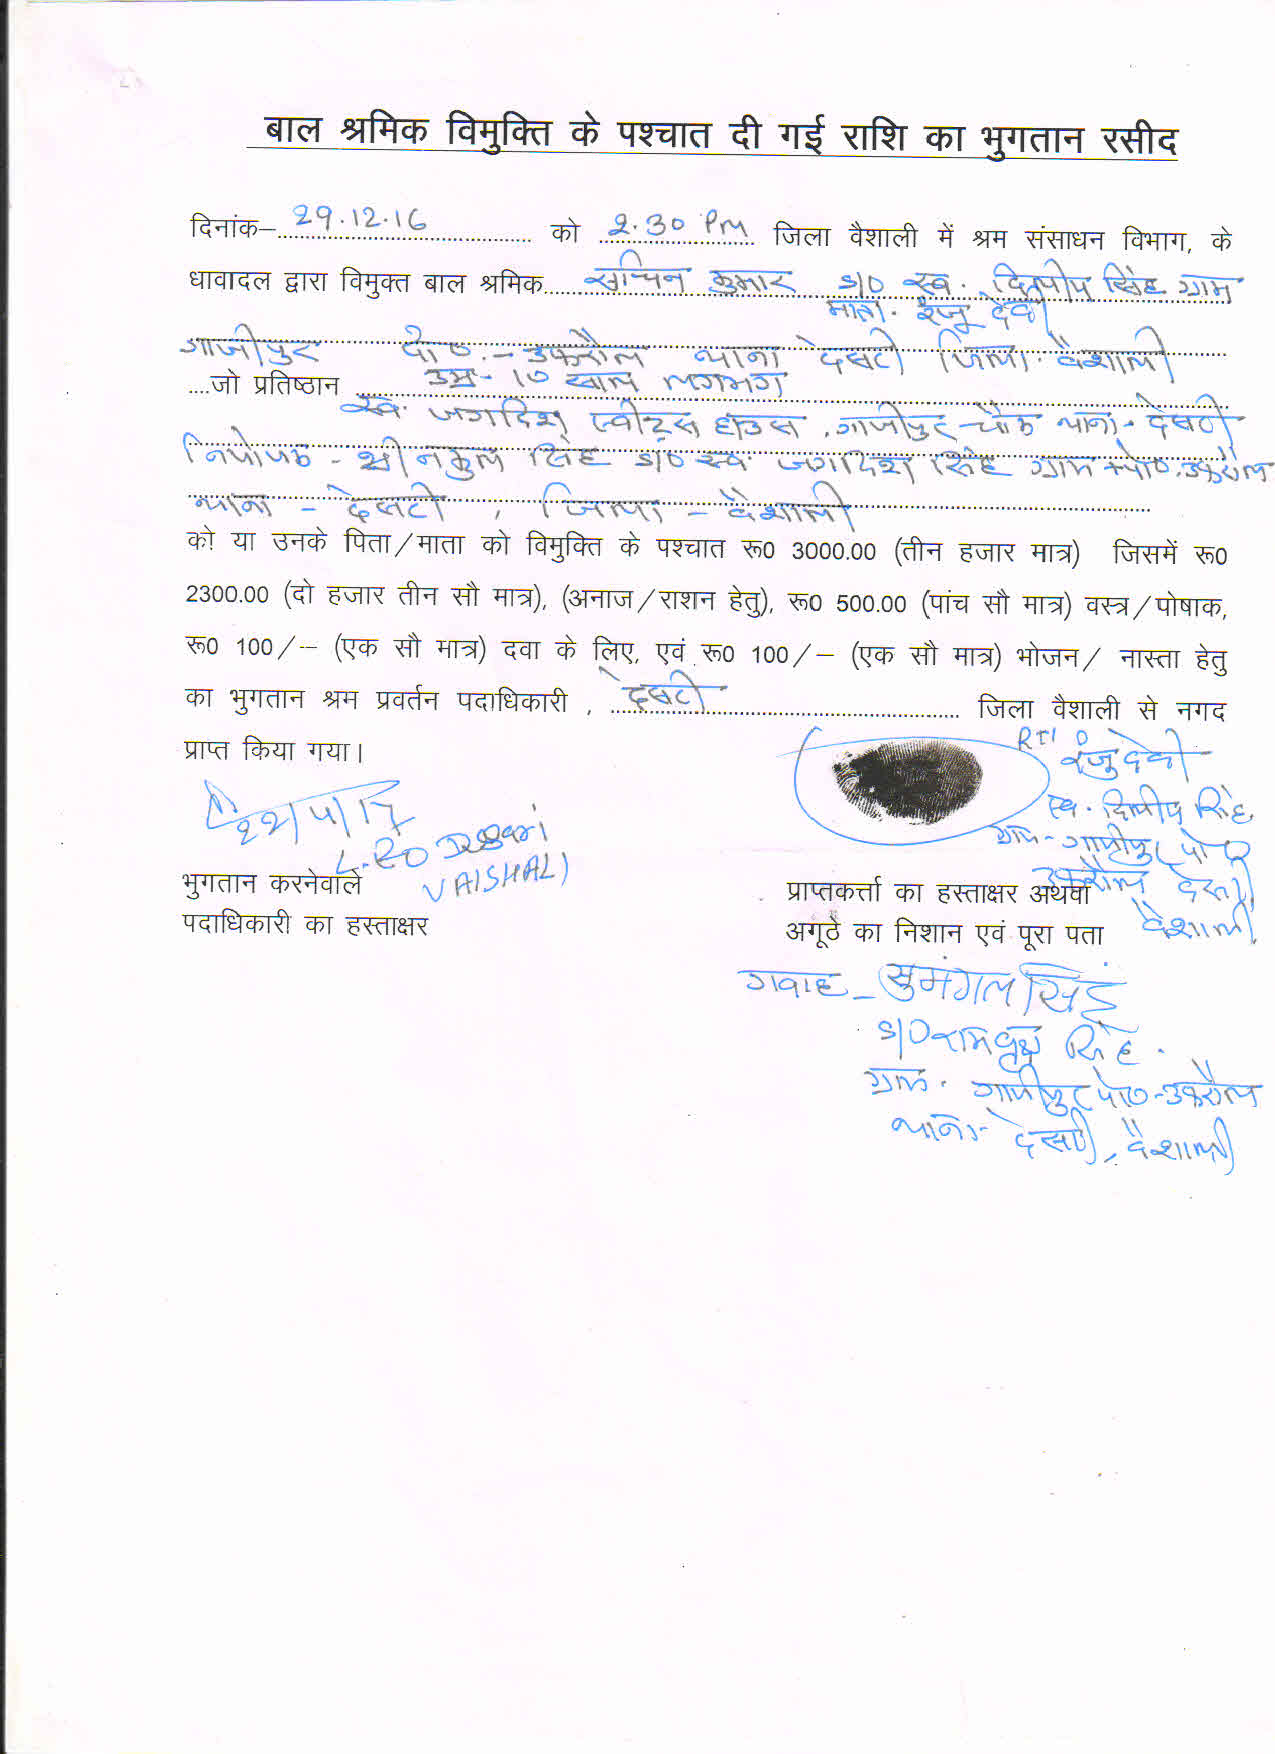 बाल श्रमिक विमुक्ति के पश्चात दी गई राशि का भुगतान रसीद
दिनांक– 29.12.16 को 2.30 Pm जिला वैशाली में श्रम संसाधन विभाग, के
धावादल द्वारा विमुक्त बाल श्रमिक सचिन कुमार S/O स्व. दिलीप सिंह ग्राम
माता. रंजू देवी
गाजीपुर पो०.-उफरौल थाना देसरी जिला. वैशाली
....जो प्रतिष्ठान उम्र- 10 साल लगभग
स्व. जगदिश स्वीट्स हाउस, गाजीपुर-चौक थाना-देसरी
नियोजक - श्री नकुल सिंह S/O स्व. जगदिश सिंह ग्राम+पो०.उफरौल
थाना - देसरी, जिला - वैशाली
को या उनके पिता/माता को विमुक्ति के पश्चात रू0 3000.00 (तीन हजार मात्र) जिसमें रू0
2300.00 (दो हजार तीन सौ मात्र), (अनाज/राशन हेतु), रू0 500.00 (पांच सौ मात्र) वस्त्र/पोषाक,
रू0 100/– (एक सौ मात्र) दवा के लिए, एवं रू0 100/– (एक सौ मात्र) भोजन/ नास्ता हेतु
का भुगतान श्रम प्रवर्तन पदाधिकारी , देसरी जिला वैशाली से नगद
प्राप्त किया गया।
RTI O
रंजु देवी
स्व. दिलीप सिंह,
ग्राम-गाजीपुर पो०
उफरौल देसरी
वैशाली
22/4/17
L.EO Desari
VAISHALI
भुगतान करनेवाले
पदाधिकारी का हस्ताक्षर
प्राप्तकर्त्ता का हस्ताक्षर अथवा
अगूठे का निशान एवं पूरा पता
गवाह - सुमंगल सिंह
S/O रामवृक्ष सिंह.
ग्राम. गाजीपुर पो०-उफरौल
थाना- देसरी, वैशाली